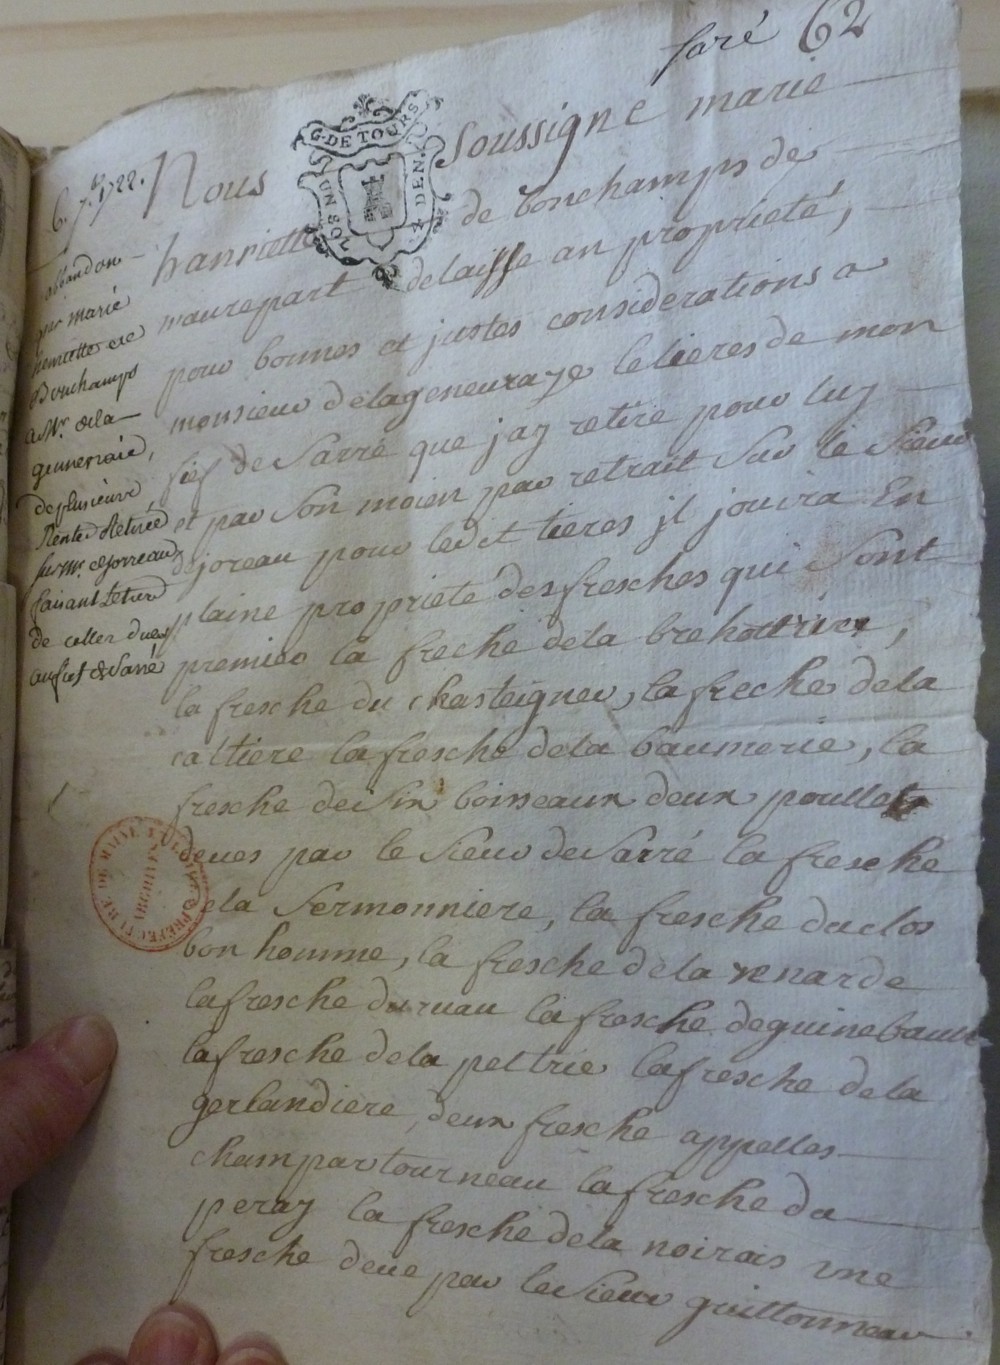 Saré 62
G. DE TOURS
2 DEN.
6. 7.bre 1722.
abbandon
par marie
henriette de
Bonchamps
a Mr. dela
genneraie,
de plusieurs
Rentes Retirées
sur Mr. dejorreau
faisant Retrait
de celles dues
au fief de Sarré
Nous soussigne marie
hanriette de bonchamps de
maurepart delaisse an proprieté,
pour bonnes et justes considerations a
monsieur delageneuraye le tieres de mon
fief de Sarré que jay retiré pour luy
et par son moien par retrait sur le sieur
dejoreau pour ledit tieres jl jouira En
plaine proprieté des fresches qui sont
premier la freche dela brehottrie,
la fresche du chasteigner, la freche dela
caltiere la fresche dela baumerie, la
fresche de six boisseaux deux poullets
deues par le sieur de Sarré la fresche
dela sermonniere, la fresche du clos
bon homme, la fresche dela renarde
la fresche du ruau la fresche deguinebault
la fresche dela peltrie la fresche dela
gerlandiere, deux fresche appelles
champartourneau la fresche du
peray la fresche dela noirais une
fresche deue par le sieur guittonneau
PREFECTURE DE MAINE & LOIRE
ARCHIVES